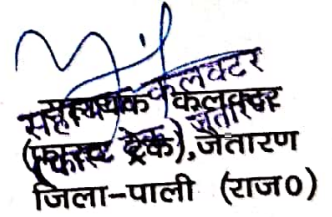 सहायक कलक्टर
(फास्ट ट्रेक), जैतारण
जिला-पाली (राज0)